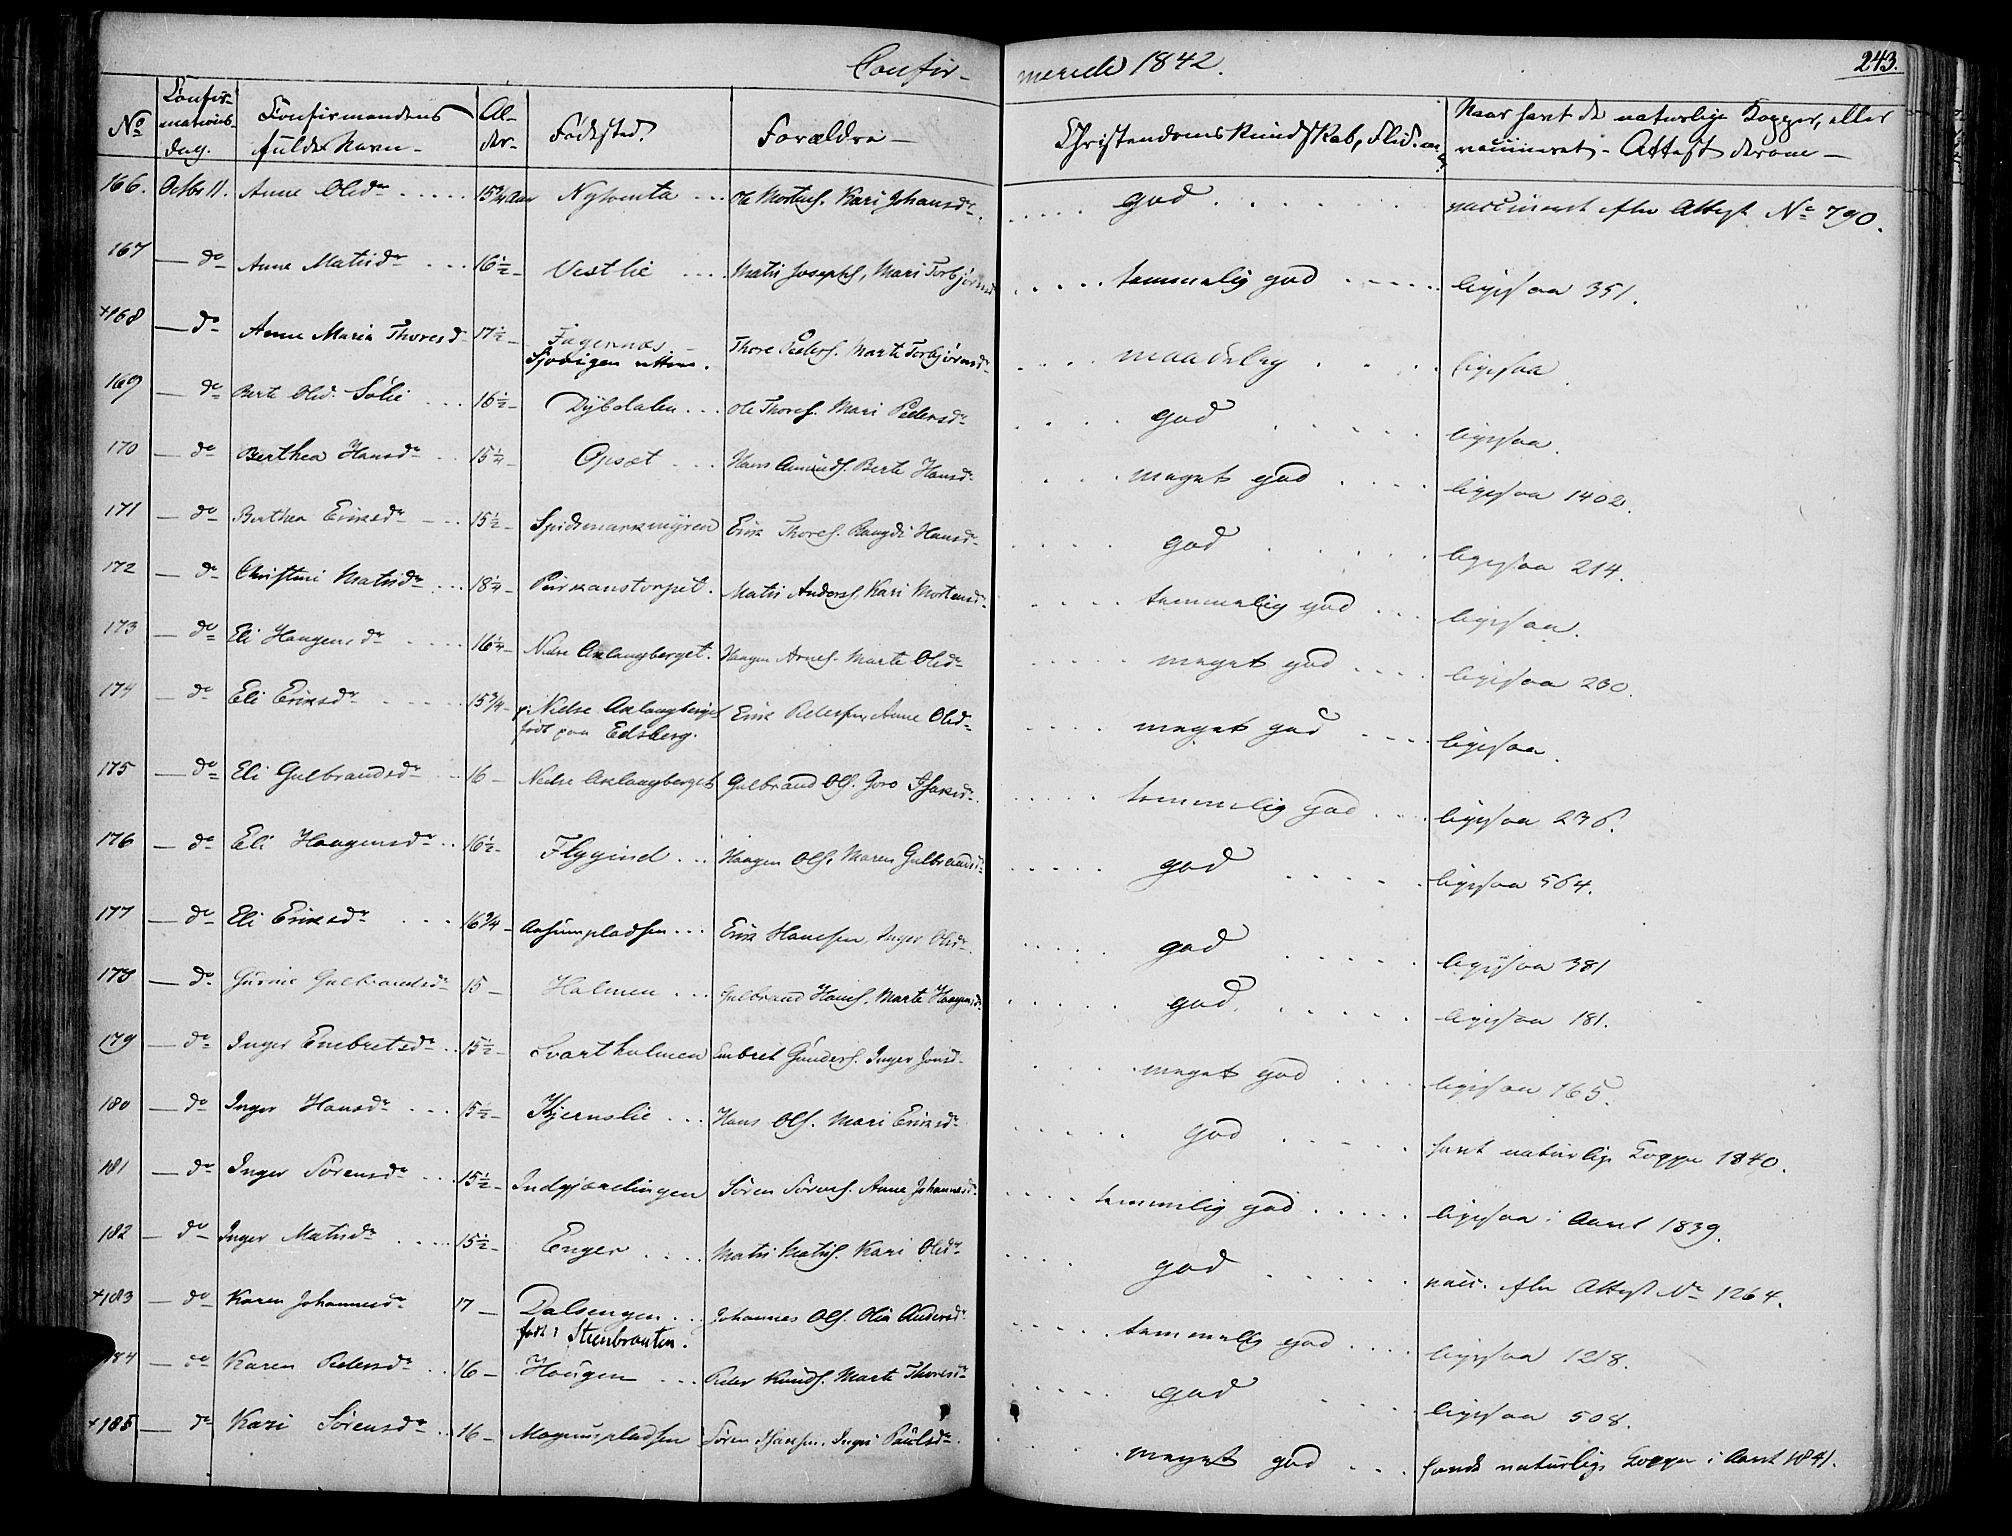 Confir-
merede 1842.
243.
No
Confir-
mations-
dag.
Confirmandens
fulde Navn -
Al-
der-
Fødested.
Forældre -
Christendoms Kundskab, Flid
Naar havt de naturlige Kopper, eller
vaccineret - Attest derom -
166. Octbr 11. Anne Olsdr 15 3/4 Aar Nytomta Ole Mortens. Kari Johansdr. god vaccineret efter Attest No 790.
167 - do Anne Matisdr 16 1/2 - Vestlie Matis Josephs, Mari Torbjørnsd temmelig god ligesaa 351.
+168 - do Anne Maria Thoresd 17 1/2 - Fagernæs - Thore Peders. Marte Torbjørnsdr maadelig ligesaa
169 - do Berte Olsd. Sølie 16 1/2 - Dybdalen Ole Thores. Mari Pedersdr god ligesaa.
170 - do Berthea Hansdr 15 1/4 - Opsæt Hans Amunds. Berte Hansdr meget god ligesaa 1402.
171 - do Berthea Eriksdr 15 1/2 - Spidsmarkmyren Erik Thores. Rangdi Hansdr god ligesaa 214.
172 - do Christine Matisdr 18 1/4 - Purkanstorpet. Matis Anders. Kari Mortensdr temmelig god ligesaa.
173 - do Eli Haagensdr 16 1/4 - Nedre Aslangberget. Haagen Arnes. Marte Olsdr meget god ligesaa 230.
174 - do Eli Eriksdr 15 3/4 - Nedre Aslangberget Erik Pedersen, Anne Olsd meget god ligesaa.
født paa Edsberg.
175 - do Eli Gulbrandsdr 16 - Nedre Aslangberget Gulbrand Ols. Goro Isaksdr temmelig god ligesaa 236.
176 - do Eli Haagensdr 16 1/2 - Flygind Haagen Ols. Maren Gulbrandsdr god ligesaa 564.
177 - do Eli Eriksdr 16 3/4 - Aasumpladsen Erik Hansen, Inger Olsdr god ligesaa 381
178 - do Gulbrandsdr 15 - Holmen Gulbrand Hans. Marte Haagensdr god ligesaa 181.
179 - do Inger Embretsdr 15 1/2 - Svartholmen Embret Gunders. Inger Jonsd - meget god ligesaa 165.
180 - do Inger Hansdr 15 1/2 - Kjernslie Hans Ols. Mari Eriksdr god havt naturlige Kopper 1840.
181 - do Inger Sørensdr 15 1/2 - Indgjærdingen Søren Sørens. Anne Johannesdr temmelig god ligesaa i Aaret 1839.
182 - do Inger Matisdr 15 1/2 - Enger Matis Matis. Kari Olsdr god vacc. efter Attest No 1264.
+183 - do Karen Johannesdr 17 - Dalsengen Johannes Ols. Olia Andersdr temmelig god ligesaa 1218.
født i Steenbraaten.
184 - do Karen Pedersdr 16 - Haugen Peder Knuds. Marte Thoresdr god ligesaa 508.
+185 - do Kari Sørensdr 16 - Magnuspladsen Søren Inger Paulsdr meget god havt naturlige Kopper i Aaret 1841.